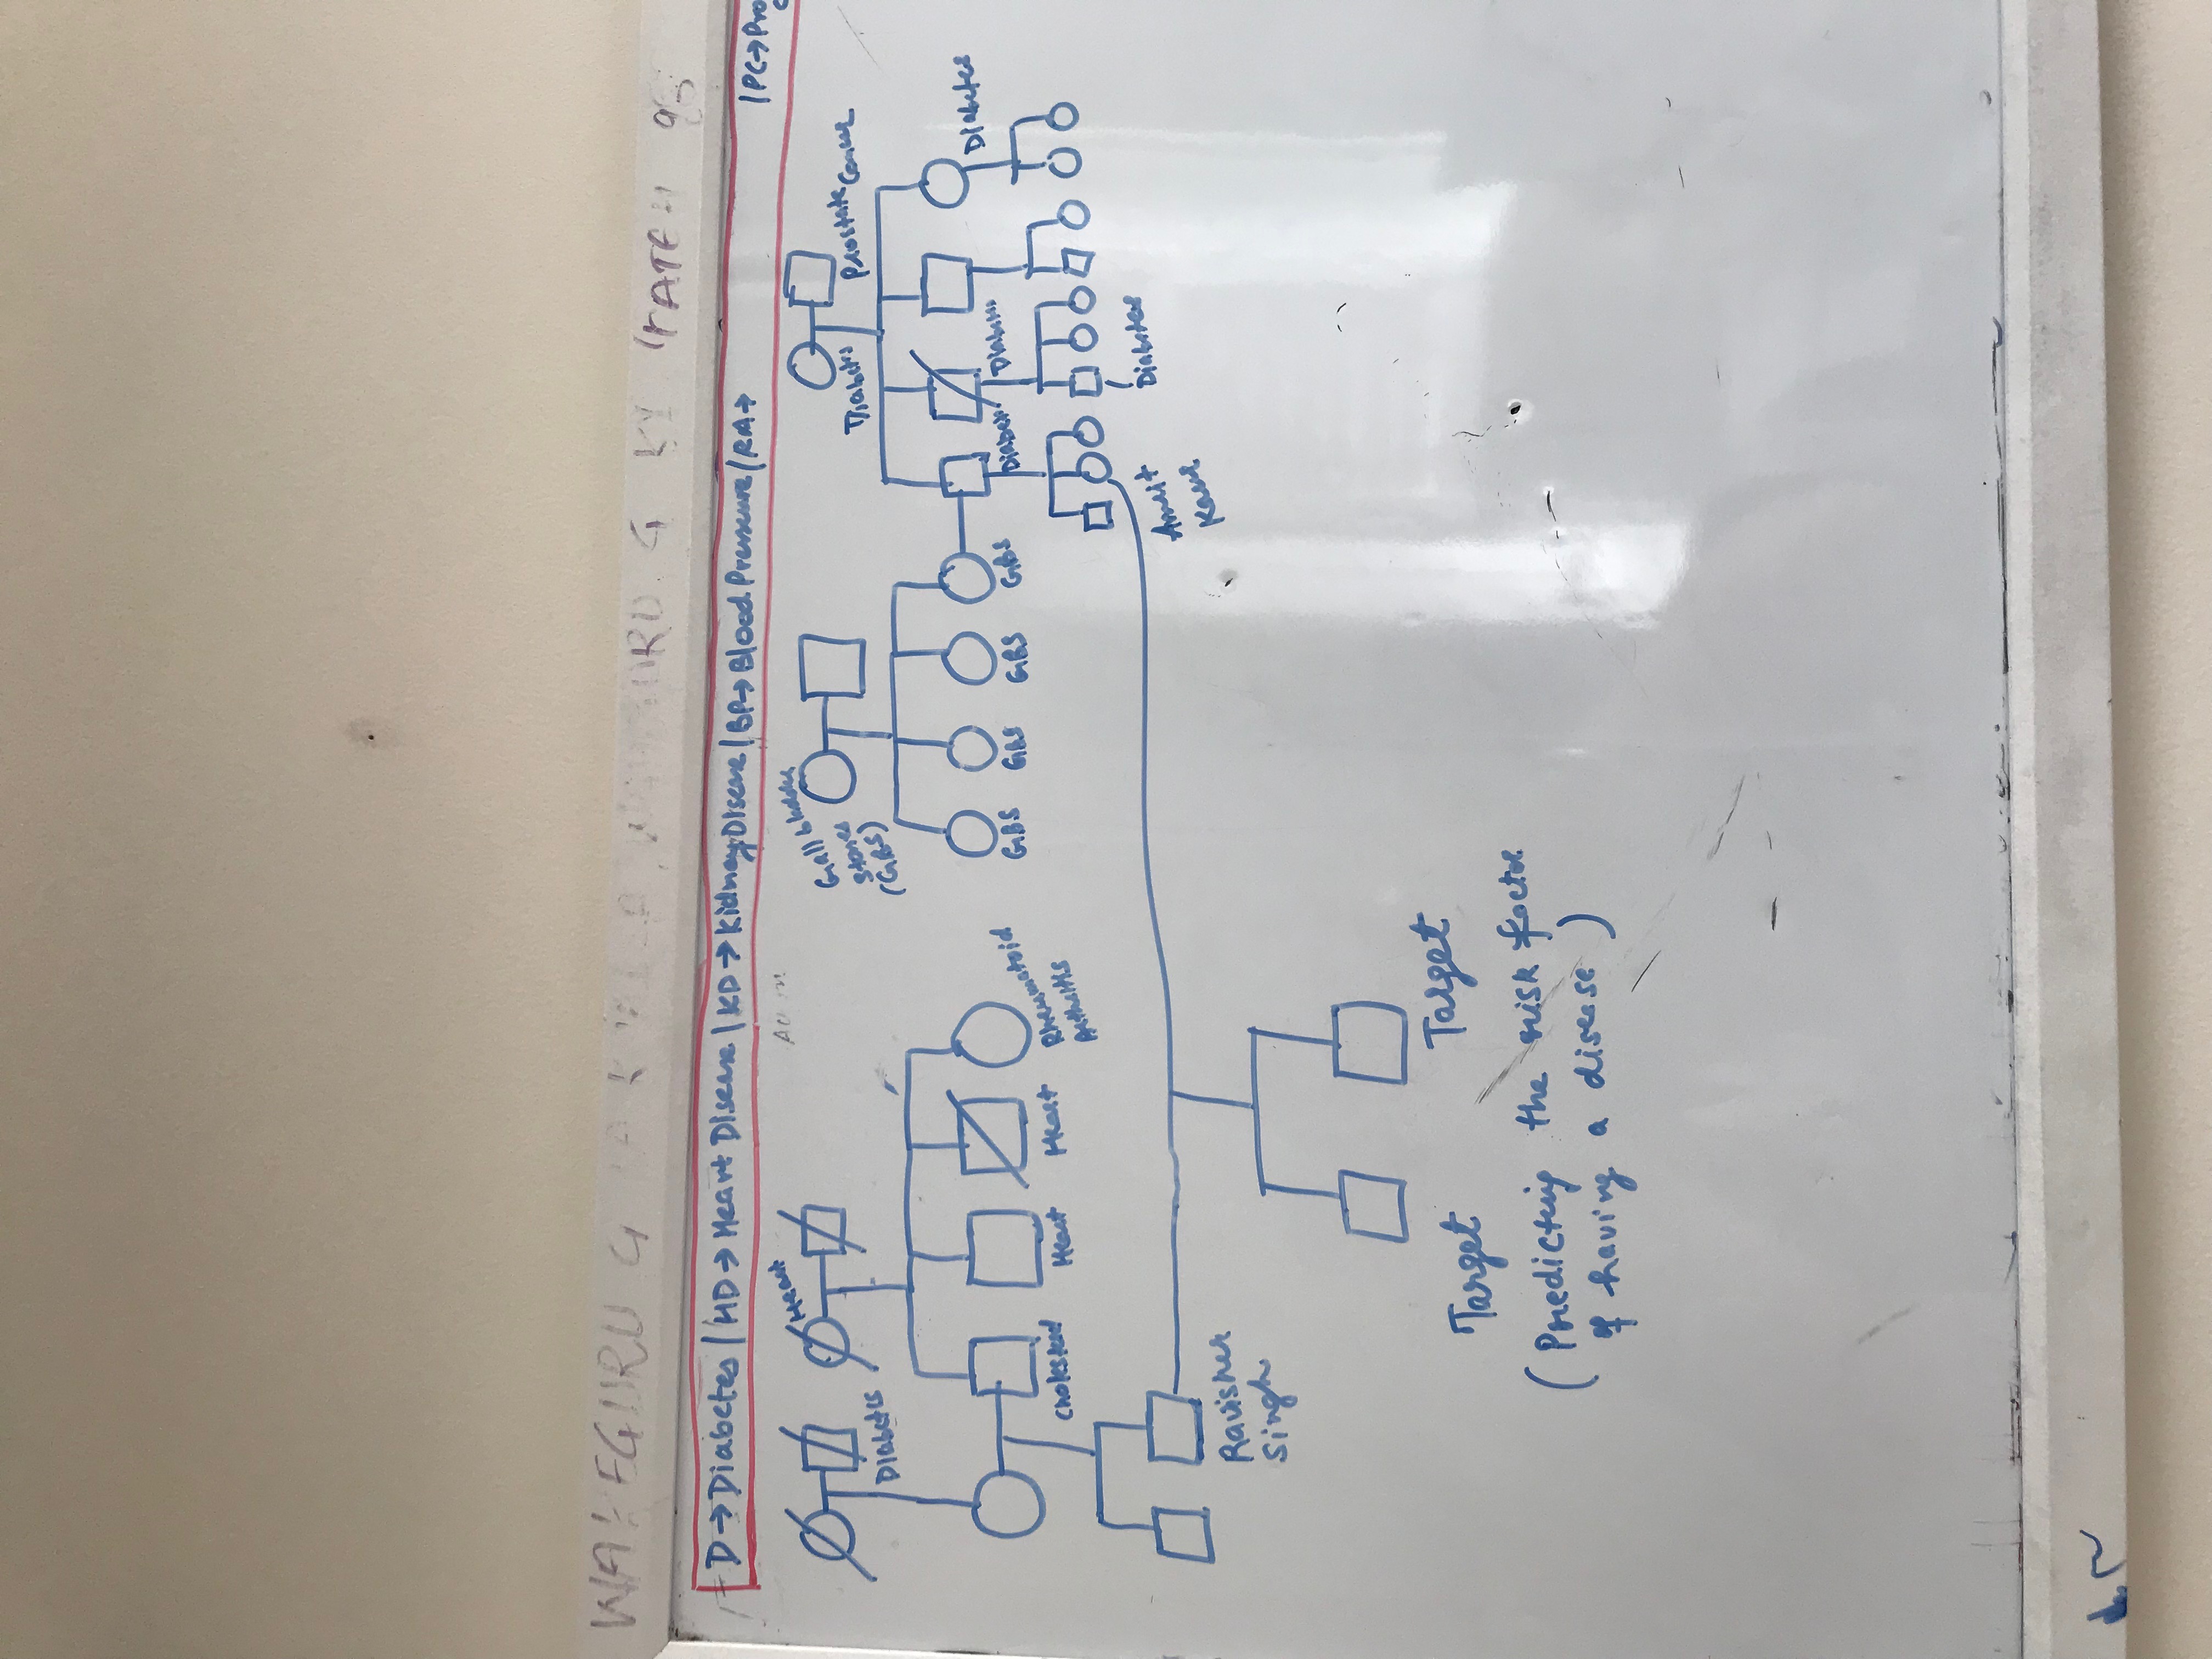 WAHEGURU G
G KI
D→Diabetes / HD→Heart Disease / KD→Kidney Disease / BP→Blood Pressure / RA→ / PC→Pro
Heart
Diabetes
Gall bladder
stones
(GBS)
Diabetes
Prostate Cancer
Cholesterol
Heart
Heart
Rheumatoid
Arthritis
GBS
GBS
GBS
GBS
Diabetes
Diabetes
Diabetes
Diabetes
Amrit
Kaur
Ravisher
Singh
Target
Target
(Predicting the risk factor
of having a disease)